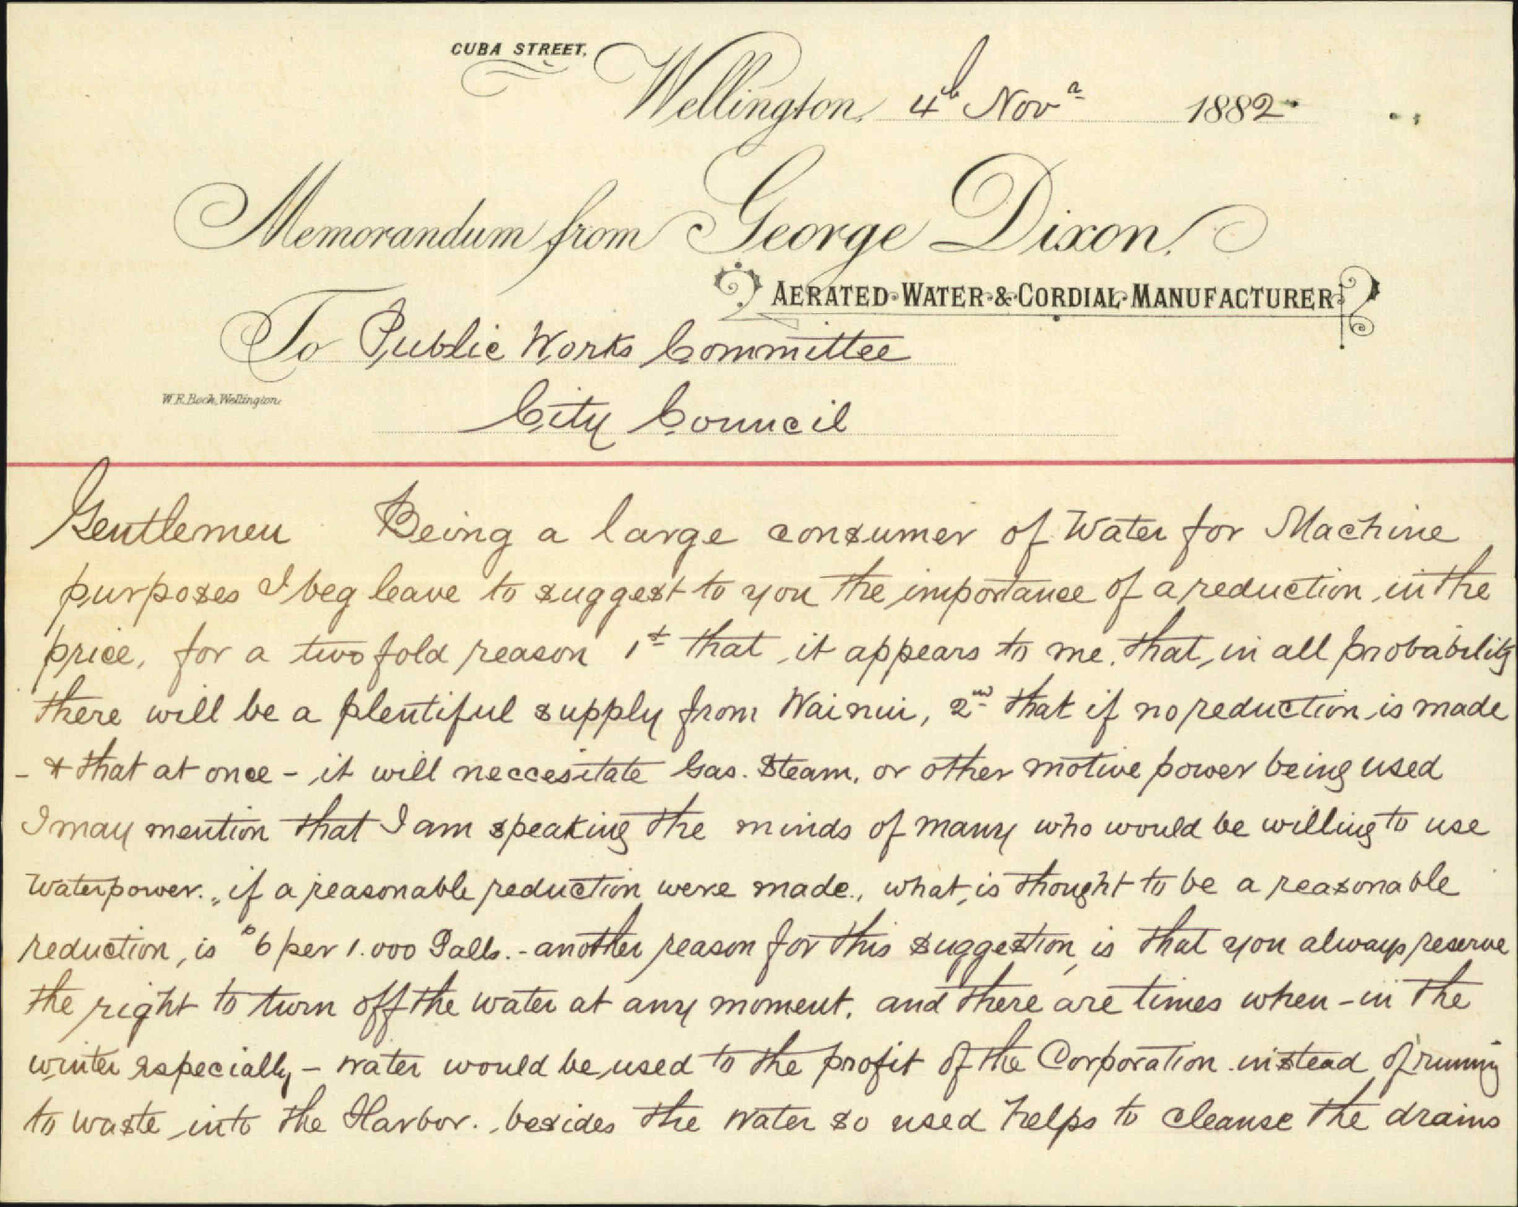 CUBA STREET,
Wellington, 4th Novr 1882
Memorandum from George Dixon,
AERATED·WATER·&·CORDIAL·MANUFACTURER
To Public Works Committee
W.R.Bock, Wellington.
City Council
Gentlemen Being a large consumer of Water for Machine
purposes I beg leave to suggest to you the importance of a reduction in the
price, for a two fold reason 1st that it appears to me, that, in all probability
there will be a plentiful supply from Wainui, 2nd that if no reduction is made
- & that at once - it will neccesitate Gas. Steam, or other motive power being used
I may mention that I am speaking the minds of many who would be willing to use
Waterpower. if a reasonable reduction were made., what is thought to be a reasonable
reduction, is 6 per 1.000 Galls. - another reason for this suggestion, is that you always reserve
the right to turn off the water at any moment, and there are times when - in the
winter especially - water would be used to the profit of the Corporation instead of runing
to waste into the Harbor. besides the water so used helps to cleanse the drains